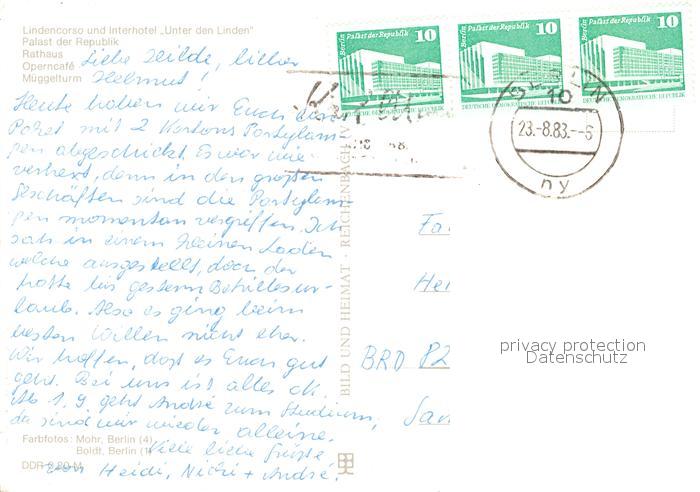 Lindencorso und Interhotel „Unter den Linden"
Palast der Republik
Rathaus
Operncafé
Müggelturm
Liebe Hilde, lieber
Helmut!
Heute haben wir Euch das
Paket mit 2 Kartons Partylam-
pen abgeschickt. Es war wie
verhext, denn in den großen
Geschäften sind die Partylam-
pen momentan vergriffen. Ich
sah in einem kleinen Laden
welche ausgestellt, doch der
hatte bis gestern Betriebsur-
laub. Also es ging beim
besten Willen nicht eher.
Wir hoffen, daß es Euch gut
geht. Bei uns ist alles ok.
Ab 1.9. geht André zum Studium,
da sind wir wieder alleine.
Viele liebe Grüße
von Heidi, Nicki + André.
Farbfotos: Mohr, Berlin (4)
Boldt, Berlin (1)
DDR 0,80 M
BILD UND HEIMAT · REICHENBACH
Berlin Palast der Republik 10
DEUTSCHE DEMOKRATISCHE REPUBLIK
Berlin Palast der Republik 10
DEUTSCHE DEMOKRATISCHE REPUBLIK
Berlin Palast der Republik 10
DEUTSCHE DEMOKRATISCHE REPUBLIK
BERLIN
10
23.-8.83.--6
ny
Fa
Hei
BRD 82
San
privacy protection
Datenschutz